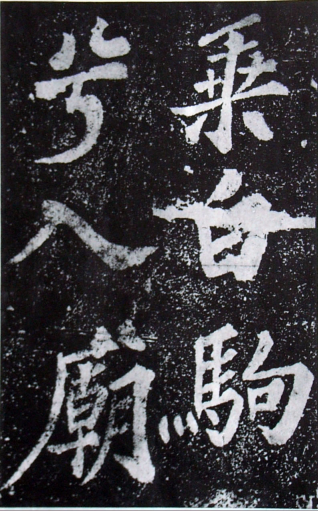 乗白駒
兮入廟